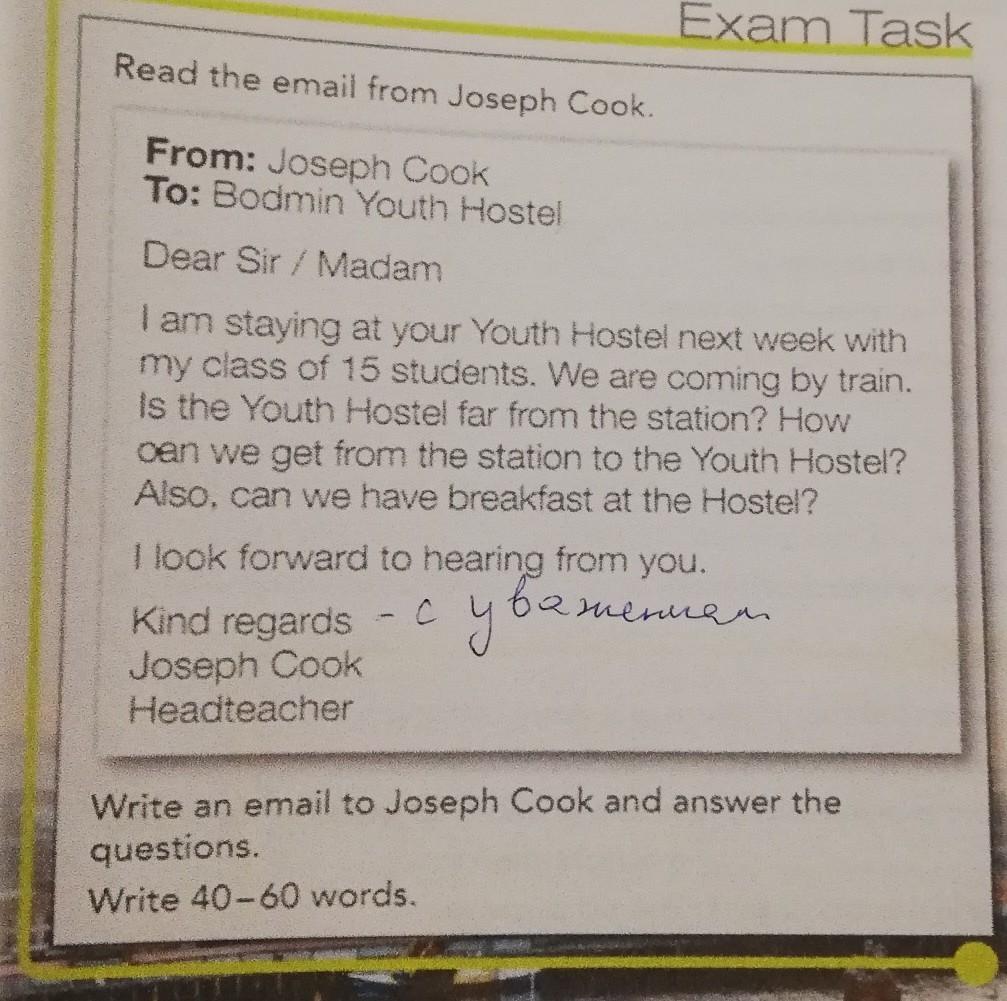 Exam Task
Read the email from Joseph Cook.
From: Joseph Cook
To: Bodmin Youth Hostel
Dear Sir / Madam
I am staying at your Youth Hostel next week with
my class of 15 students. We are coming by train.
Is the Youth Hostel far from the station? How
can we get from the station to the Youth Hostel?
Also, can we have breakfast at the Hostel?
I look forward to hearing from you.
Kind regards - с уважением
Joseph Cook
Headteacher
Write an email to Joseph Cook and answer the
questions.
Write 40–60 words.